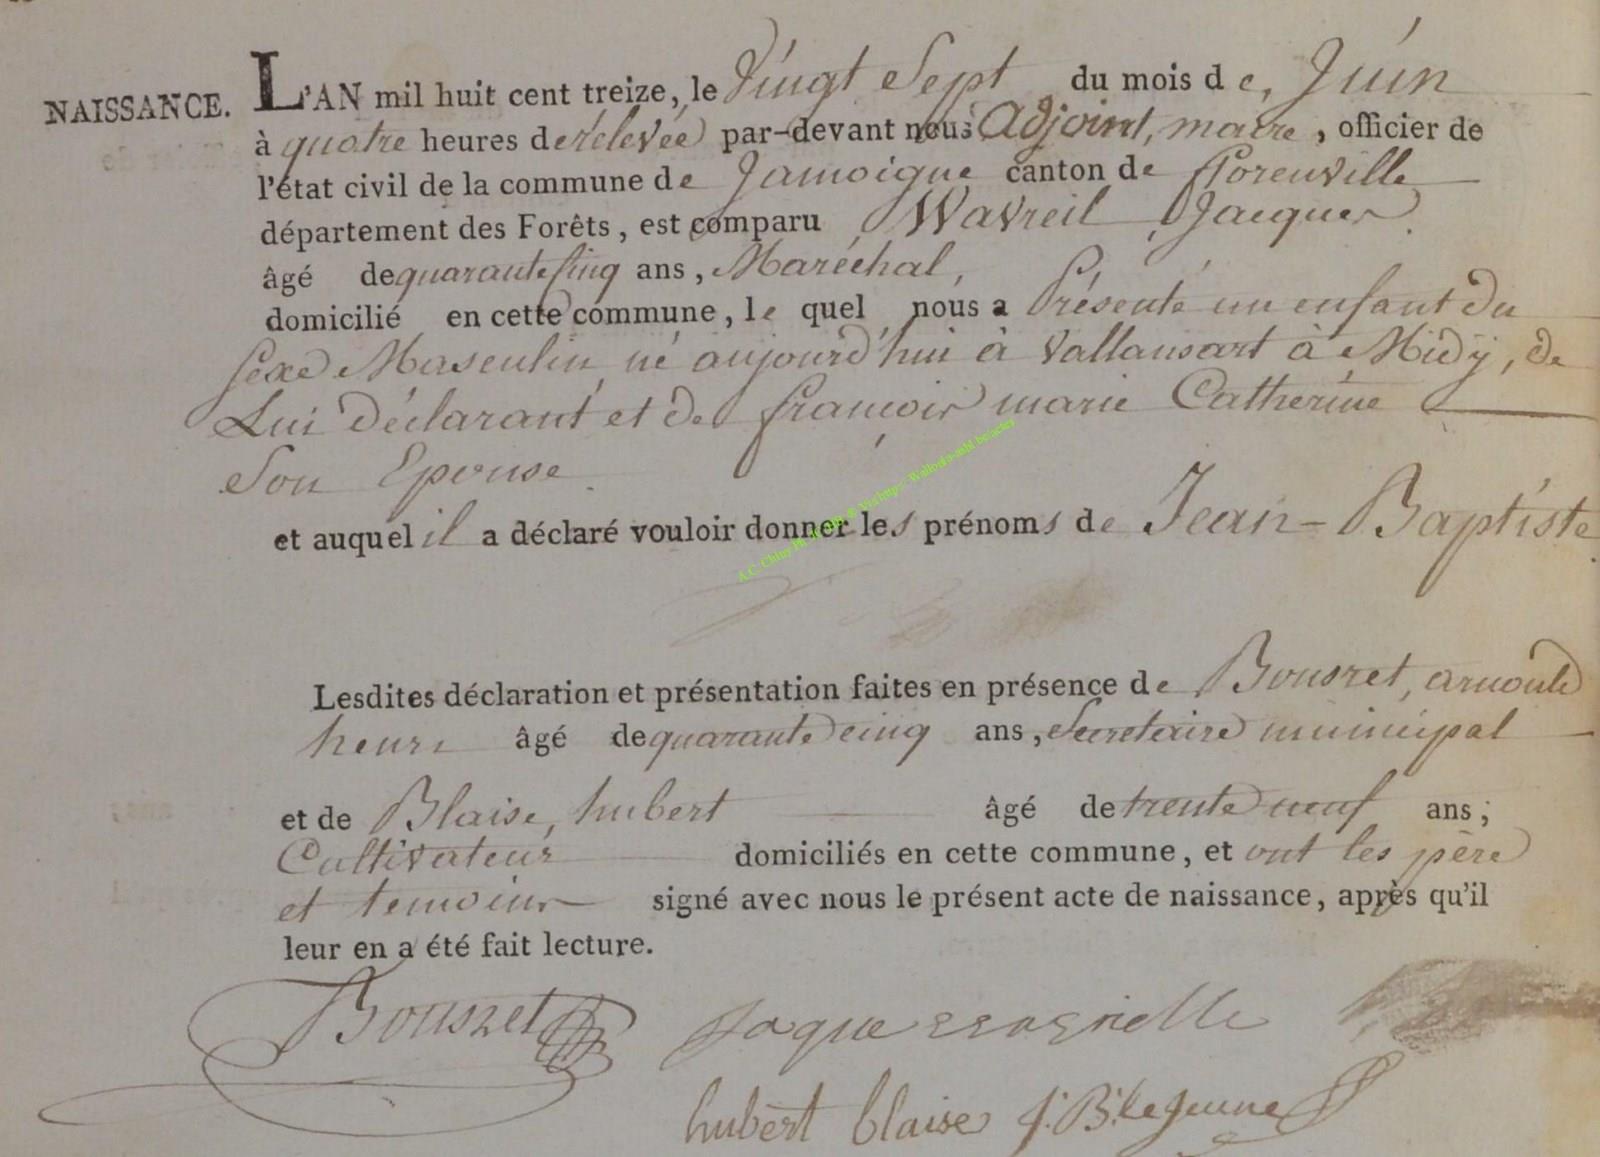 NAISSANCE. L'AN mil huit cent treize, le Vingt Sept du mois de, Juin
à quatre heures de rélevée par-devant nous Adjoint, maire, officier de
l'état civil de la commune de Jamoigne canton de Florenville
département des Forêts, est comparu Wavreil, Jacques
âgé de quarante Cinq ans, Maréchal,
domicilié en cette commune, le quel nous a Présenté un enfant du
sexe Masculin, né aujourd'hui à Vallansart à Midy, de
Lui déclarant et de françois marie Catherine
Son Epouse.
et auquel il a déclaré vouloir donner les prénoms de Jean-Baptiste
Lesdites déclaration et présentation faites en présence de Bousret, arnould
henri âgé de quarante cinq ans, Secretaire municipal
et de Blaise, hubert âgé de trente neuf ans;
Cultivateur domiciliés en cette commune, et ont les père
et temoins signé avec nous le présent acte de naissance, après qu'il
leur en a été fait lecture.
Bousret Jaque
hubert blaise J: B: Lejeune